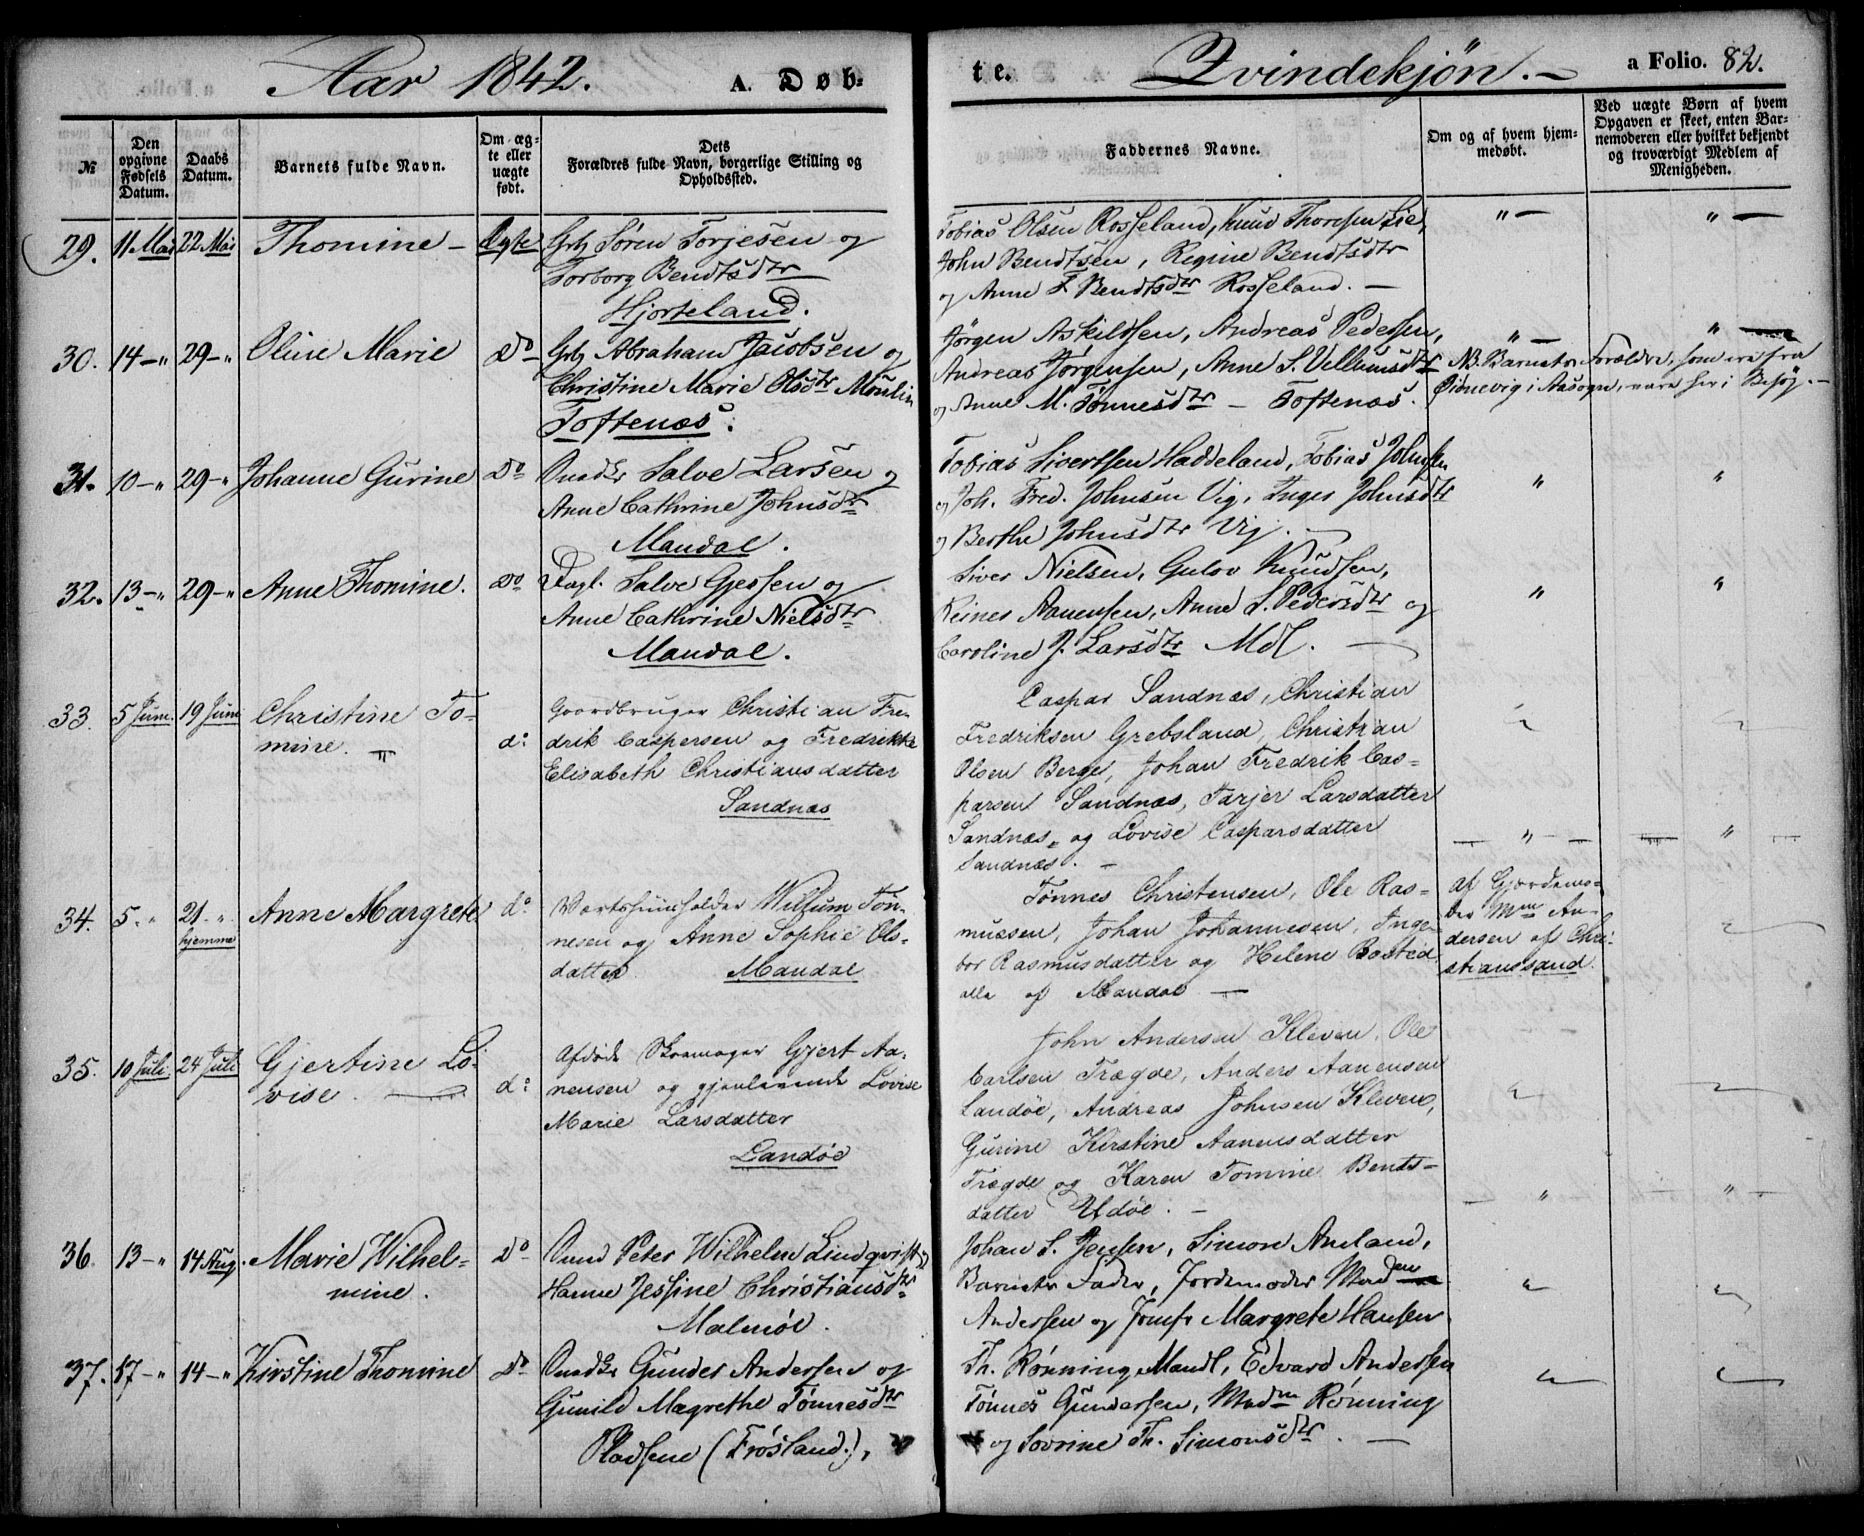 Aar 1842. A. Døb-
te. Qvindekjøn. — a Folio. 82.
№ Den opgivne Fødsels Datum. Daabs Datum. Barnets fulde Navn. Om ægte eller uægte født. Dets Forældres fulde Navn, borgerlige Stilling og Opholdssted.
Faddernes Navne. Om og af hvem hjemmedøbt. Ved uægte Børn af hvem Opgaven er skeet, enten Barnemoderen eller hvilket bekjendt og troværdigt Medlem af Menigheden.
29. 11 Mai 22 Mai Thomine — Ægte Grb Søren Torjesen og
Torborg Bendtsdtr
Hjorteland.
Tobias Olsen Rosseland, Knud Thoresen Lie,
John Bendtsen, Regine Bendtsdtr
og Anne T Bendtsdtr Rosseland. —
" — " —
30. 14 — " 29 — " Oline Marie Do Grb Abraham Jacobsen og
Christine Marie Olsdtr Moulin
Toftenæs.
Jørgen Askildsen, Andreas Pedersen,
Andreas Jørgensen, Anne S. Vellumsdtr
og Anne M. Tønnesdtr — Toftenæs.
" — " —
NB. Barnets Forældre, som ere fra
Øidnevig i Aasogn, vare her i Besøg. —
31. 10 — " 29 — " Johanne Gurine Do Salve Larsen og
Anne Cathrine Johnsdtr
Mandal.
Tobias Sivertsen Haddeland, Tobias Johnsen
og Joh. Fred. Johnsen Vig, Inger Johnsdtr
og Berthe Johnsdtr Vig. —
" "
32. 13 — " 29 — " Anne Thomine. Do Dagl. Salve Gjessen og
Anne Cathrine Nielsdtr
Mandal.
Siver Nielsen, Gulov Knudsen,
Reines Aanensen, Anne S. Pedersdtr og
Caroline J. Larsdtr Mdl. —
" "
33. 5 Juni. 19 Juni Christine To-
mine. do Gaardbruger Christian Fre-
drik Caspersen og Fredrikke
Elisabeth Christiansdatter
Sandnæs
Caspar Sandnæs, Christian
Fredriksen Grebsland, Christian
Olsen Berge, Johan Fredrik Cas-
parsen Sandnæs, Tarjer Larsdatter
Sandnæs, og Lovise Casparsdatter
Sandnæs. —
— " — — " —
34. 5. " 21. " hjemme Anne Margrete do Værtshuusholder Willum Tøn-
nesen og Anne Sophie Ols-
datter Mandal
Tønnes Christensen, Ole Ras-
mussen, Johan Johannesen, Inge-
bor Rasmusdatter og Helene Bosted
alle af Mandal —
af Gjordemo-
der Mm An-
dersen af Chri-
stianssand.
35. 10 Juli. 24 Juli Gjertine Lo-
vise. do Afdøde Skomager Gjert Aa-
nensen og gjenlevende Lovise
Marie Larsdatter
Landøe
John Andersen Kleven, Ole
Carlsen Trægde, Anders Aanensen
Landøe, Andreas Johnsen Kleven,
Gurine Kirstine Aanensdatter
Trægde og Karen Tomine Bents-
datter Udøe. —
— " — " —
36. 13 — " 14 Aug. Marie Wilhel-
mine. Do Peter Wilhelm Lindqvist og
Hanne Jessine Christiansdtr
Malmöe.
Johan S. Jensen, Simon Ameland,
Barnets Fader, Jordemoder Madm
Andersen og Jomfr Margrete Hansen
37. 17 — " 14 — " Kirstine Thomine Do Gunder Andersen og
Gunild Magrethe Tønnesdtr
Pladsene (Frøsland.),
Th. Rønning Mandl, Edvard Andersen
Tønnes Gundersen, Madm Rønning
og Sovrine Th. Simonsdtr. —